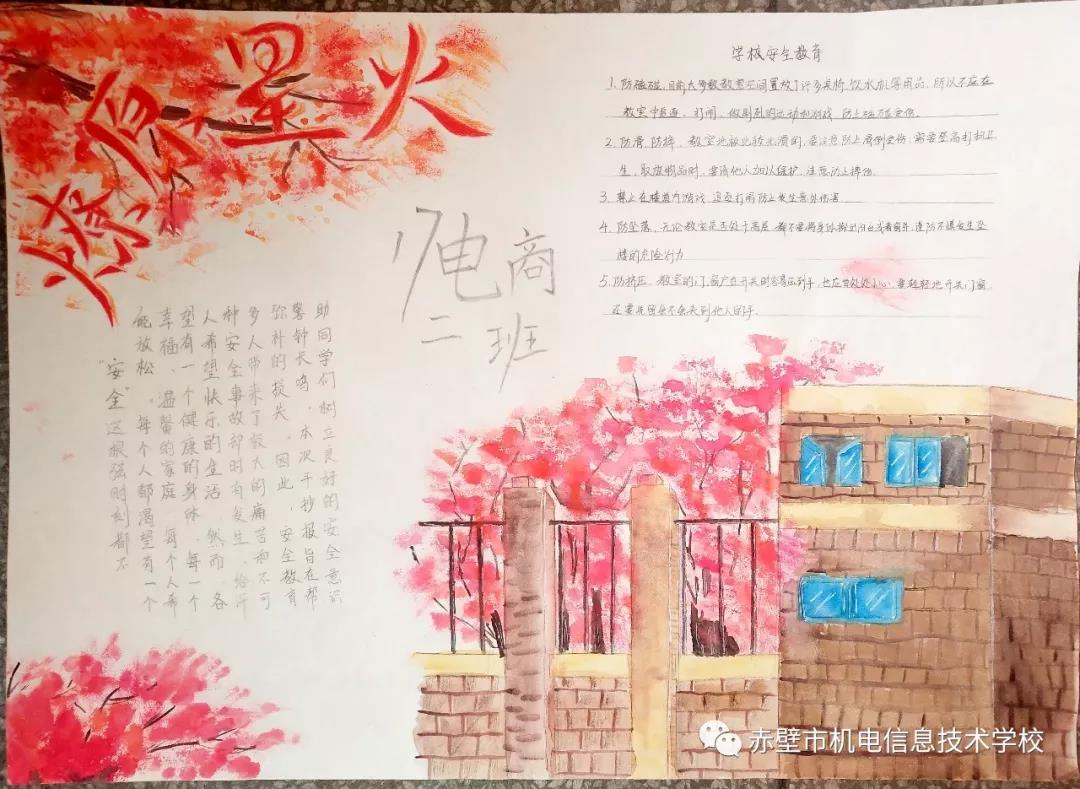 燎原星火
17电商
二班
学校安全教育
1、防磕碰。目前大多数教室空间置放了许多桌椅、饮水机等用品，所以不应在
教室中追逐、打闹、做剧烈的运动和游戏，防止磕碰受伤。
2、防滑、防摔。教室地板比较光滑的，要注意防止滑倒受伤；需要登高打扫卫
生、取放物品时，要请他人加以保护，注意防止摔伤。
3、禁止在楼道内游戏、追逐打闹防止发生意外伤害
4、防坠落。无论教室是否处于高层，都不要将身体探出阳台或者窗外，谨防不慎发生坠
楼的危险行为
5、防挤压。教室的门、窗户在开关时容易压到手，也应当处处小心，要轻轻地开关门窗，
还要先留会不会夹到他人的手。
“安全”这根弦时刻都不
能放松。每个人都渴望有一个
幸福、温馨的家庭，每个人希
望有一个健康的身体，每一个
人希望快乐的生活，然而，各
种安全事故却时有发生，给许
多人带来了极大的痛苦和不可
弥朴的损失。因此，安全教育
警钟长鸣。本次手抄报旨在帮
助同学们树立良好的安全意识
赤壁市机电信息技术学校